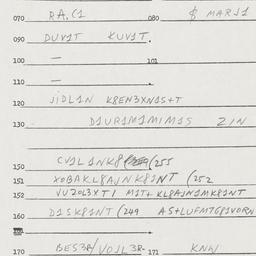 070 RA.C1 080 $ MARJ1
090 DUV1T KUV1T.
100 — 101
110 —
120 JIDL1N K8EN3XN1S+T
130 D1UR1M1MIM1S ZIN
150 CV1L1NK8 (255
151 XOBAKL8AJNK81NT (252
152 VUZOL3XTI M1T+KL8AJN1MK81NT
160 D1SK81NT (249 AS+LUFMTG81VORN
170 BES3R/VOJL3R- 171 KNW